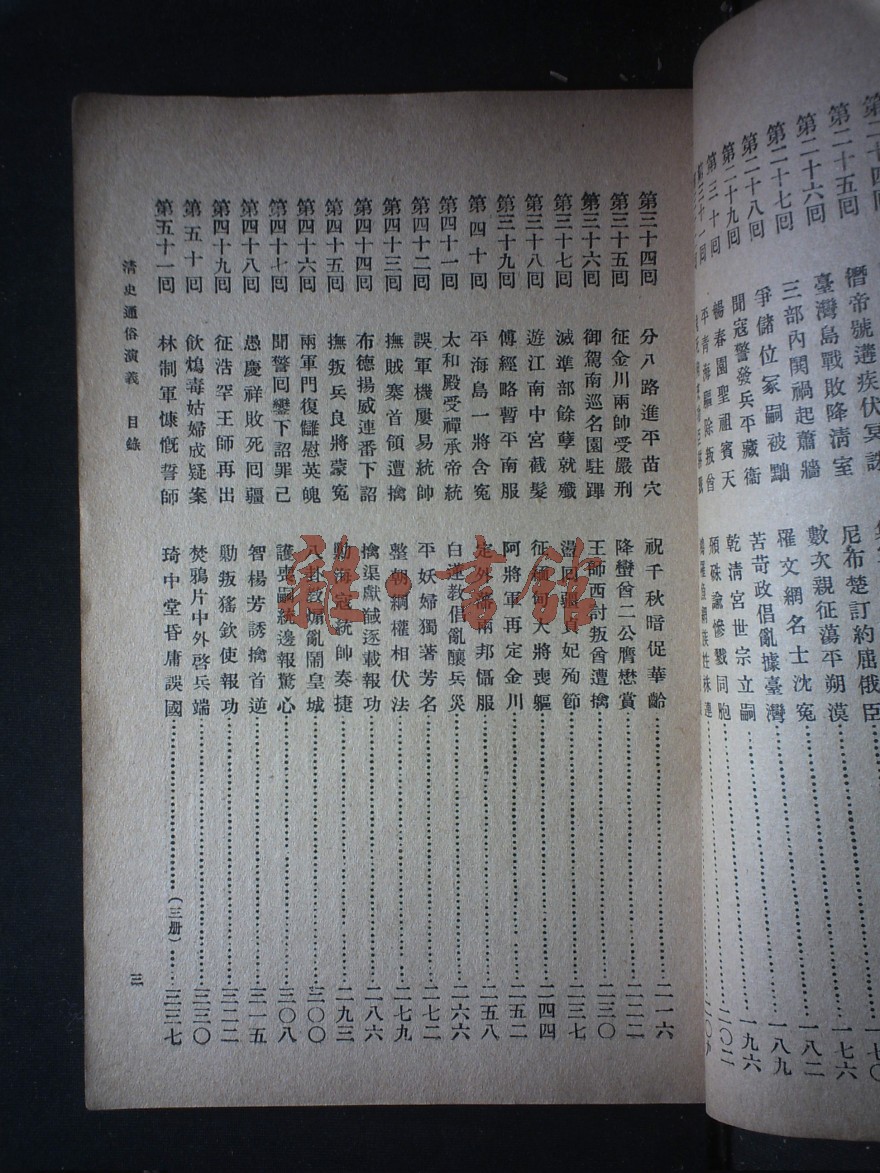 第二十四回
第二十五回 僭帝號遘疾伏冥誅 尼布楚訂約屈俄臣 一七〇
第二十六回 臺灣島戰敗降清室 數次親征蕩平朔漠 一七六
第二十七回 三部內鬨禍起蕭牆 羅文網名士沈冤 一八二
第二十八回 爭儲位冢嗣被黜 苦苛政倡亂據臺灣 一八九
第二十九回 聞寇警發兵平藏衞 乾清宮世宗立嗣 一九六
第三十回 暢春園聖祖賓天 頒硃諭慘戮同胞 二〇二
平青海驅除叛酋
第三十四回 分八路進平苗穴 祝千秋暗促華齡 二一六
第三十五回 征金川兩帥受嚴刑 降蠻酋二公膺懋賞 二二二
第三十六回 御駕南巡名園駐蹕 王師西討叛酋遭擒 二三〇
第三十七回 滅準部餘孽就殲 盪回疆貞妃殉節 二三七
第三十八回 遊江南中宮截髮 征緬甸大將喪軀 二四四
第三十九回 傅經略暫平南服 阿將軍再定金川 二五二
第四十回 平海島一將含冤 定外番兩邦懾服 二五八
第四十一回 太和殿受禪承帝統 白蓮敎倡亂釀兵災 二六六
第四十二回 誤軍機屢易統帥 平妖婦獨著芳名 二七二
第四十三回 撫賊寨首領遭擒 整朝綱權相伏法 二七九
第四十四回 布德揚威連番下詔 擒渠獻馘逐載報功 二八六
第四十五回 撫叛兵良將蒙冤 勦海寇統帥奏捷 二九三
第四十六回 兩軍門復讎慰英魄 八卦敎煽亂鬧皇城 三〇〇
第四十七回 聞警回鑾下詔罪己 護喪嗣統邊報驚心 三〇八
第四十八回 愚慶祥敗死回疆 智楊芳誘擒首逆 三一五
第四十九回 征浩罕王師再出 勦叛猺欽使報功 三二二
第五十回 飲鴆毒姑婦成疑案 焚鴉片中外啓兵端 三三〇
第五十一回 林制軍慷慨誓師 琦中堂昏庸誤國 (三册) 三三七
清史通俗演義 目錄 三
雜·書館